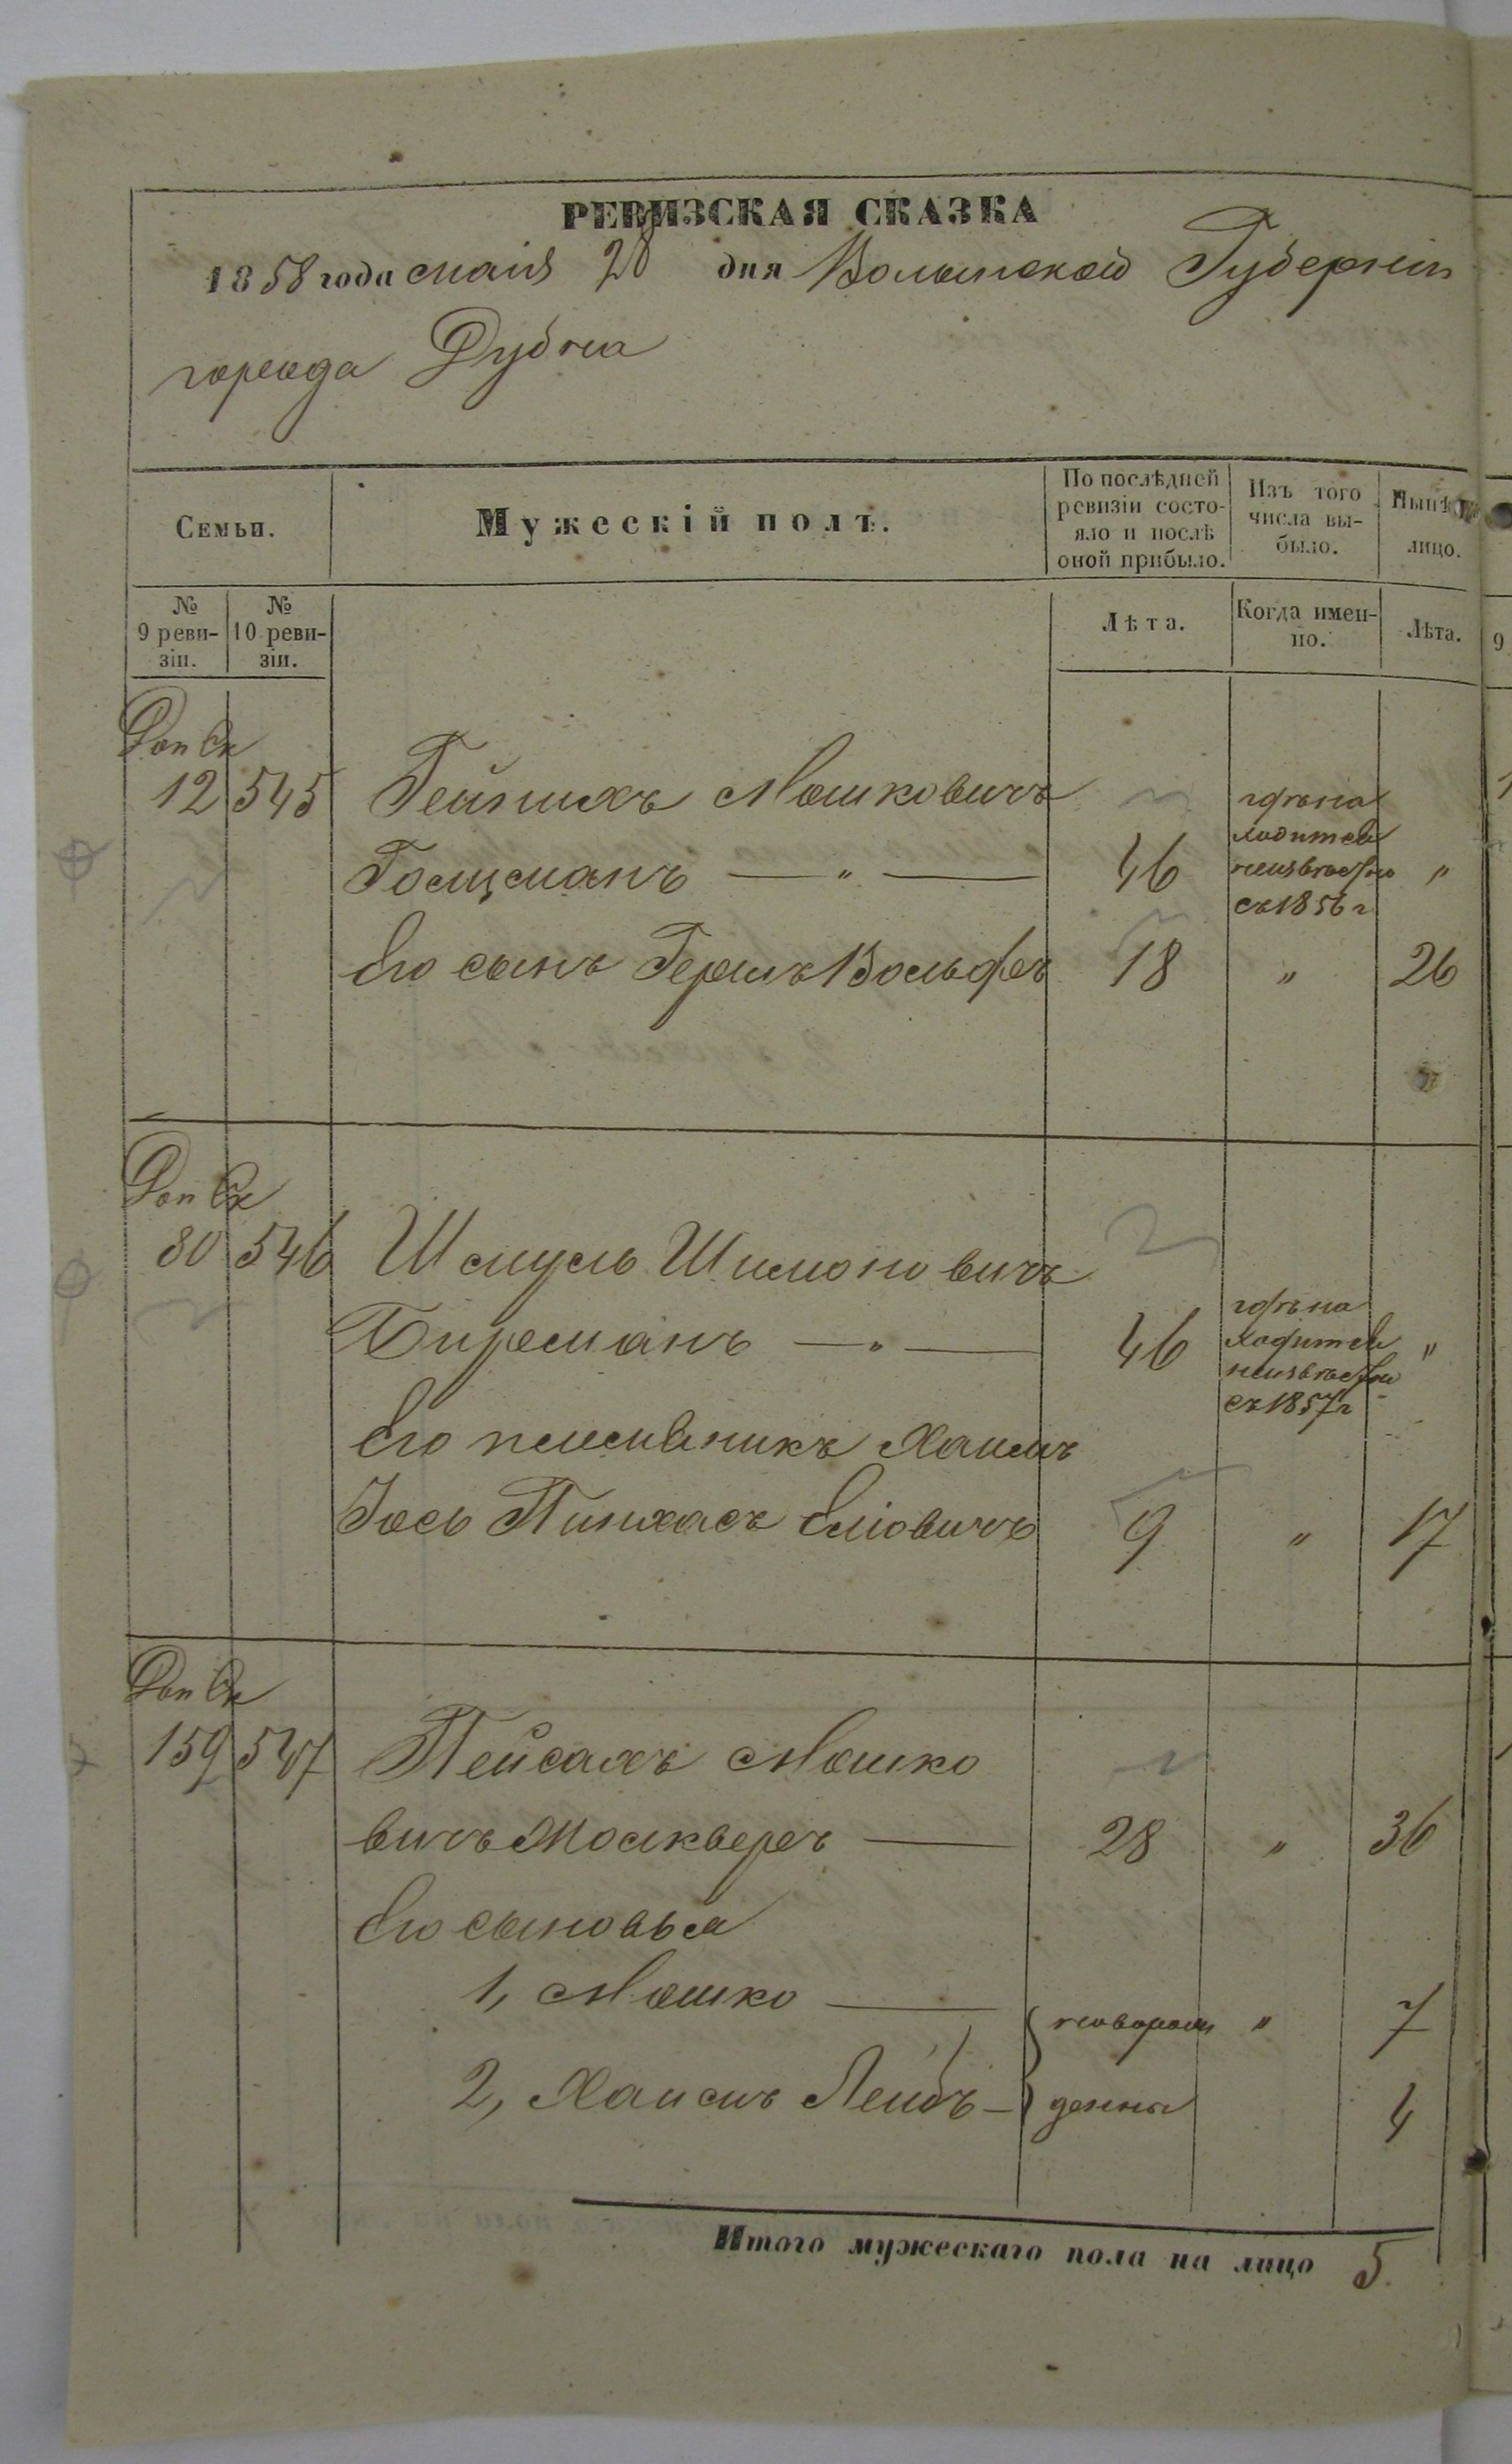 РЕВИЗСКАЯ СКАЗКА
1858 года маія 28 дня Волынской Губерніи
города Дубна
Семьи.
Мужескій полъ.
По послѣдней
ревизіи состо-
яло и послѣ
оной прибыло.
Изъ того
числа вы-
было.
Нынѣ
лицо.
№
9 реви-
зіи.
№
10 реви-
зіи.
Лѣта.
Когда имен-
но.
Лѣта.
Доп Ск
12 545 Гейнихъ Мошковичъ
Гольцманъ — " — 46 гдѣ на
ходится
неизвѣстно
съ 1856 г "
Его сынъ Гершъ Вольфъ 18 " 26
Доп Ск
80 546 Шмуль Шимоновичъ
Бирманъ — " — 46 гдѣ на
ходится
неизвѣстно
съ 1857 г "
Его племяникъ Хаимъ
Іось Пинхасъ Еліовичъ 9 " 17
Доп Ск
159 547 Пейсахъ Мошко
вичъ — 28 " 36
Его сыновья
1, Мошко — новорож " 7
2, Хаимъ Лейбъ — денны 4
Итого мужескаго пола на лицо 5.